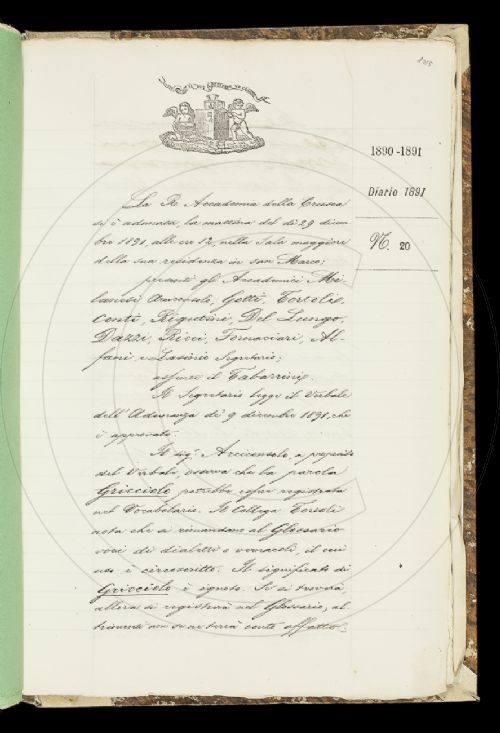 1890-1891
Diario 1891
N. 20
La R. Accademia della Crusca
si è adunata, la mattina del dì 29 dicem
bre 1891, alle ore 12, nella Sala maggiore
della sua residenza in San Marco;
presenti gli Accademici Mi-
lanesi Arciconsolo, Gotti, Tortoli,
Conti, Rigutini, Del Lungo,
Dazzi, Ricci, Fornaciari, Al-
fani, e Lasinio Segretario;
assente il Tabarrini.
Il Segretario legge il Verbale
dell'Adunanza de' 9 dicembre 1891, che
è approvato.
Il sig. Arciconsolo, a proposito
del Verbale, osserva che la parola
Gricciolo potrebbe esser registrata
nel Vocabolario. Il Collega Tortoli
nota che si rimandano al Glossario
voci di dialetti o vernacoli, il cui
uso è circoscritto. Il significato di
Gricciolo è ignoto. Se si troverà,
allora si registrerà nel Glossario; al-
trimenti non se ne terrà conto